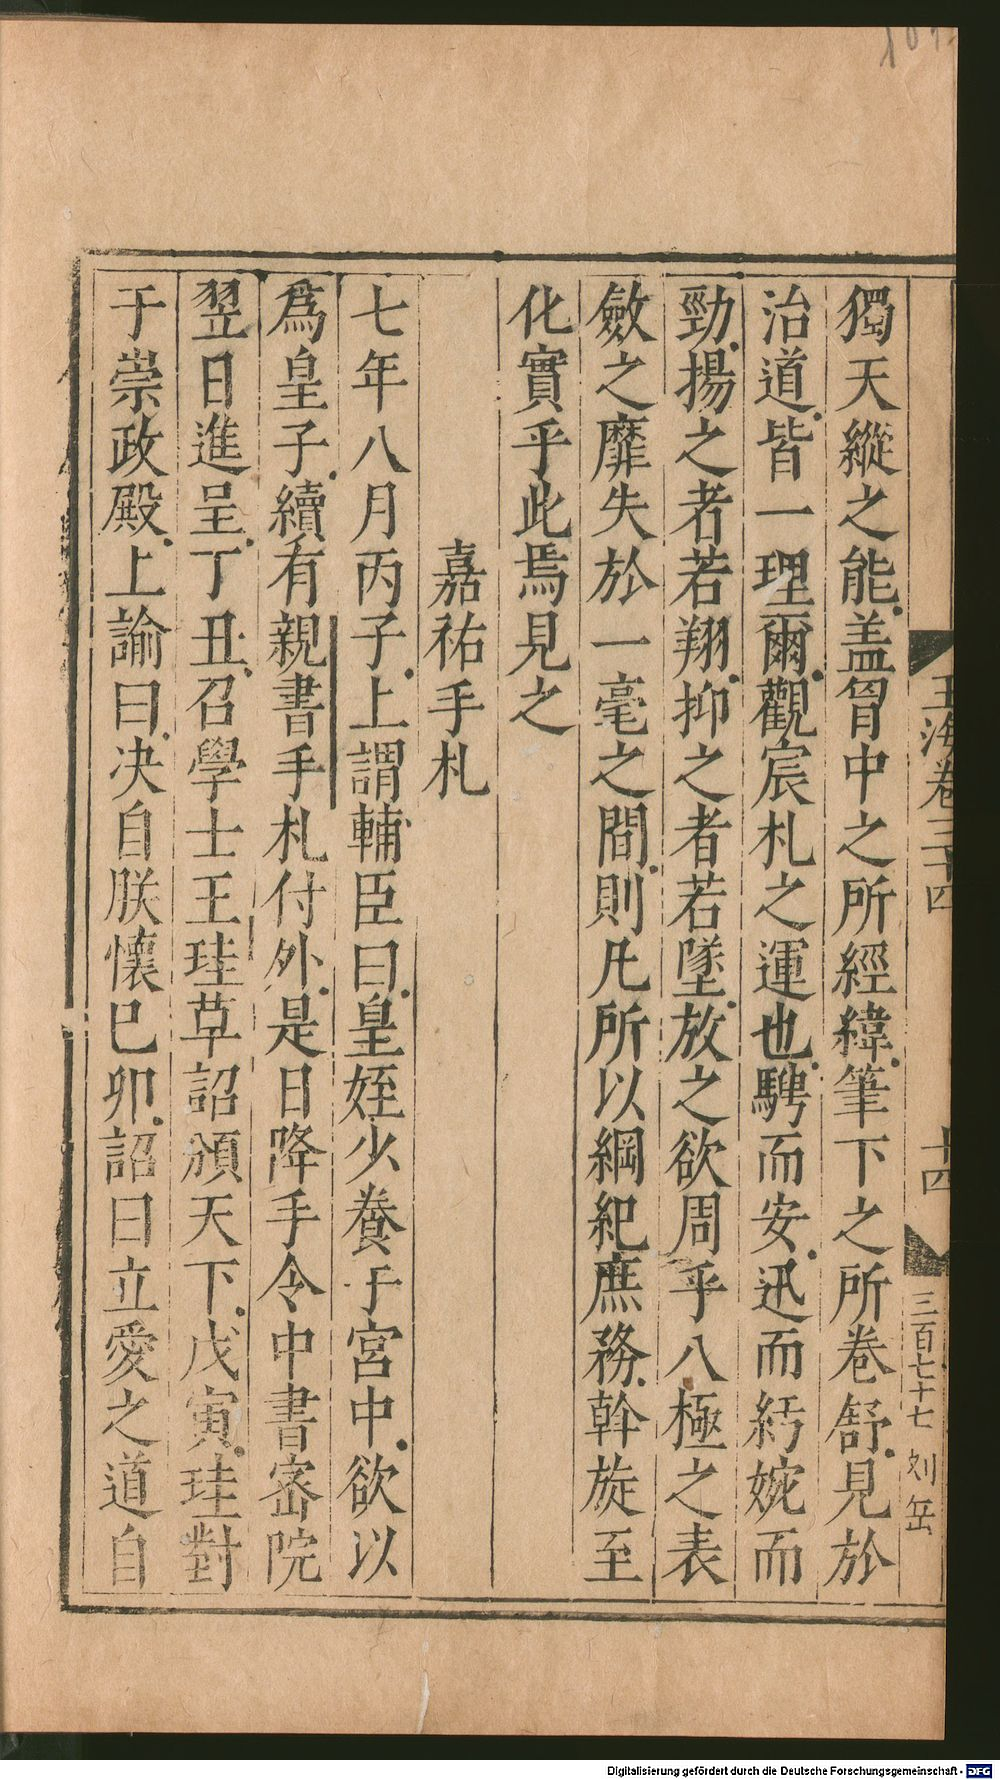 玉海卷三十四 十四 三百七十七 刘岳
獨天縱之能盖胷中之所經緯筆下之所卷舒見於
治道皆一理爾觀宸札之運也騁而安迅而紆婉而
勁揚之者若翔抑之者若墜放之欲周乎八極之表
斂之靡失於一毫之間則凡所以綱紀庶務幹旋至
化實乎此焉見之
嘉祐手札
七年八月丙子上謂輔臣曰皇姪少養于宮中欲以
爲皇子續有親書手札付外是日降手令中書宻院
翌日進呈丁丑召學士王珪草詔頒天下戊寅珪對
于崇政殿上諭曰决自朕懷巳卯詔曰立愛之道自
Digitalisierung gefördert durch die Deutsche Forschungsgemeinschaft - DFG